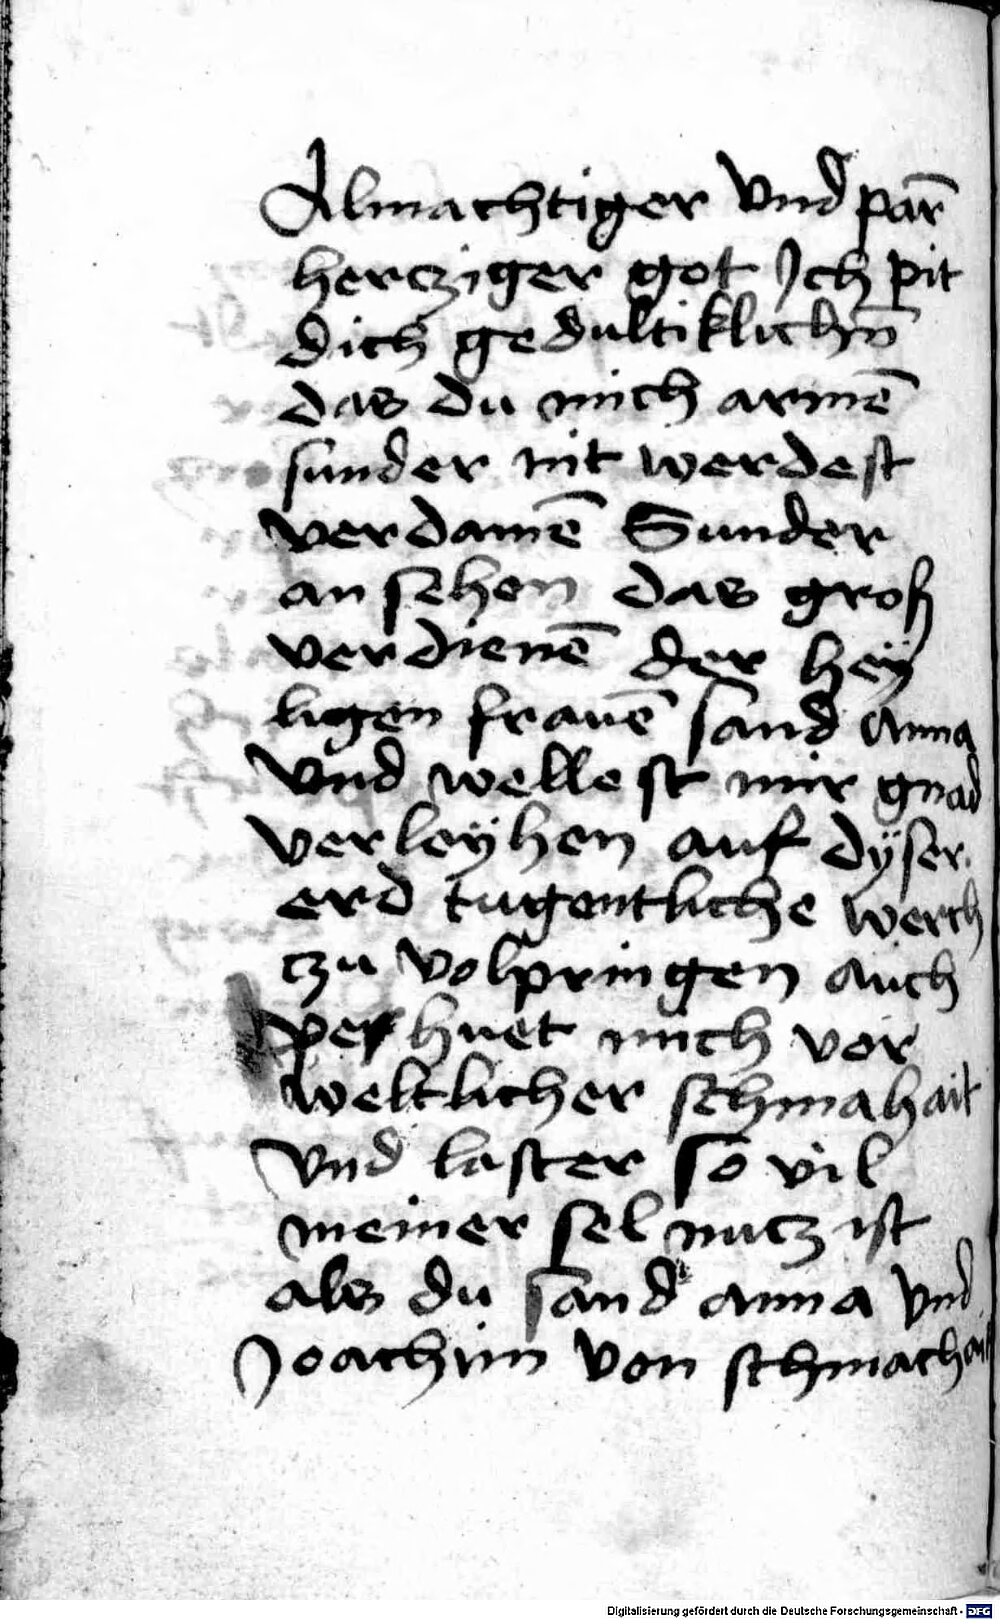 Almachtiger vnd parm̄
hercziger got Jch pit
dich gedultiklichn̄
das du mich armē
sunder nit werdest
verdamē Sunder
an sehen das groß
verdienē der heÿ
ligen frauē sand Anna
vnd wellest mir gnad
verleÿhen auf dÿser
erd tugentliche werch
czu volpringen auch
per huet mich vor
weltlicher schmahait
vnd laster so vil
meiner sel nucz ist
als du sand anna vnd
Joachim von schmachait
Digitalisierung gefördert durch die Deutsche Forschungsgemeinschaft - DFG